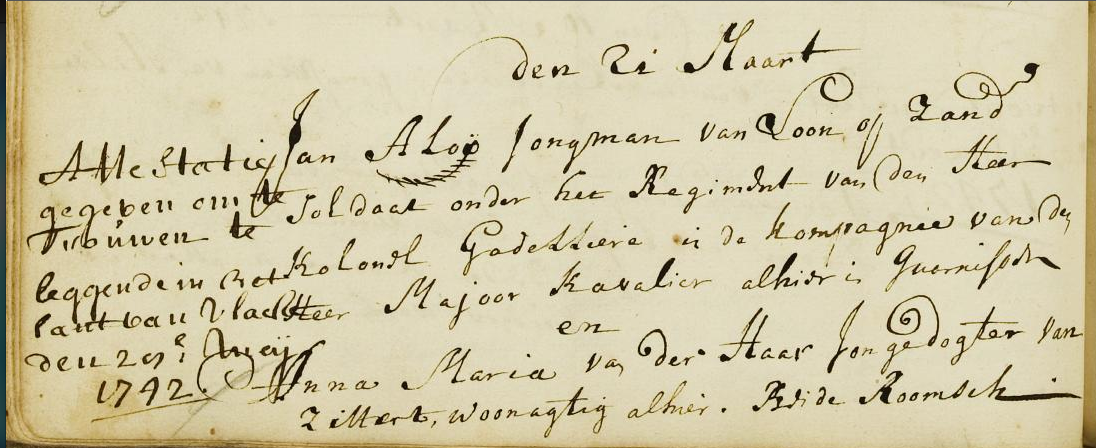 den 21 Maart
Jan Aloÿ Jongman van Loon op Zand
Soldaat onder het Regiment van den Heer
Kolonel Gadelliere in de kompagnie van den
Heer Majoor Kavalier alhier in Guarnisoen
en
Anna Maria van der Haar Jongedogter van
Zittert, woonagtig alhier. Beide Roomsch
Attestatie
gegeven om te
Trouwen te
leggende in het
lant van
den 29e Meij
1742.